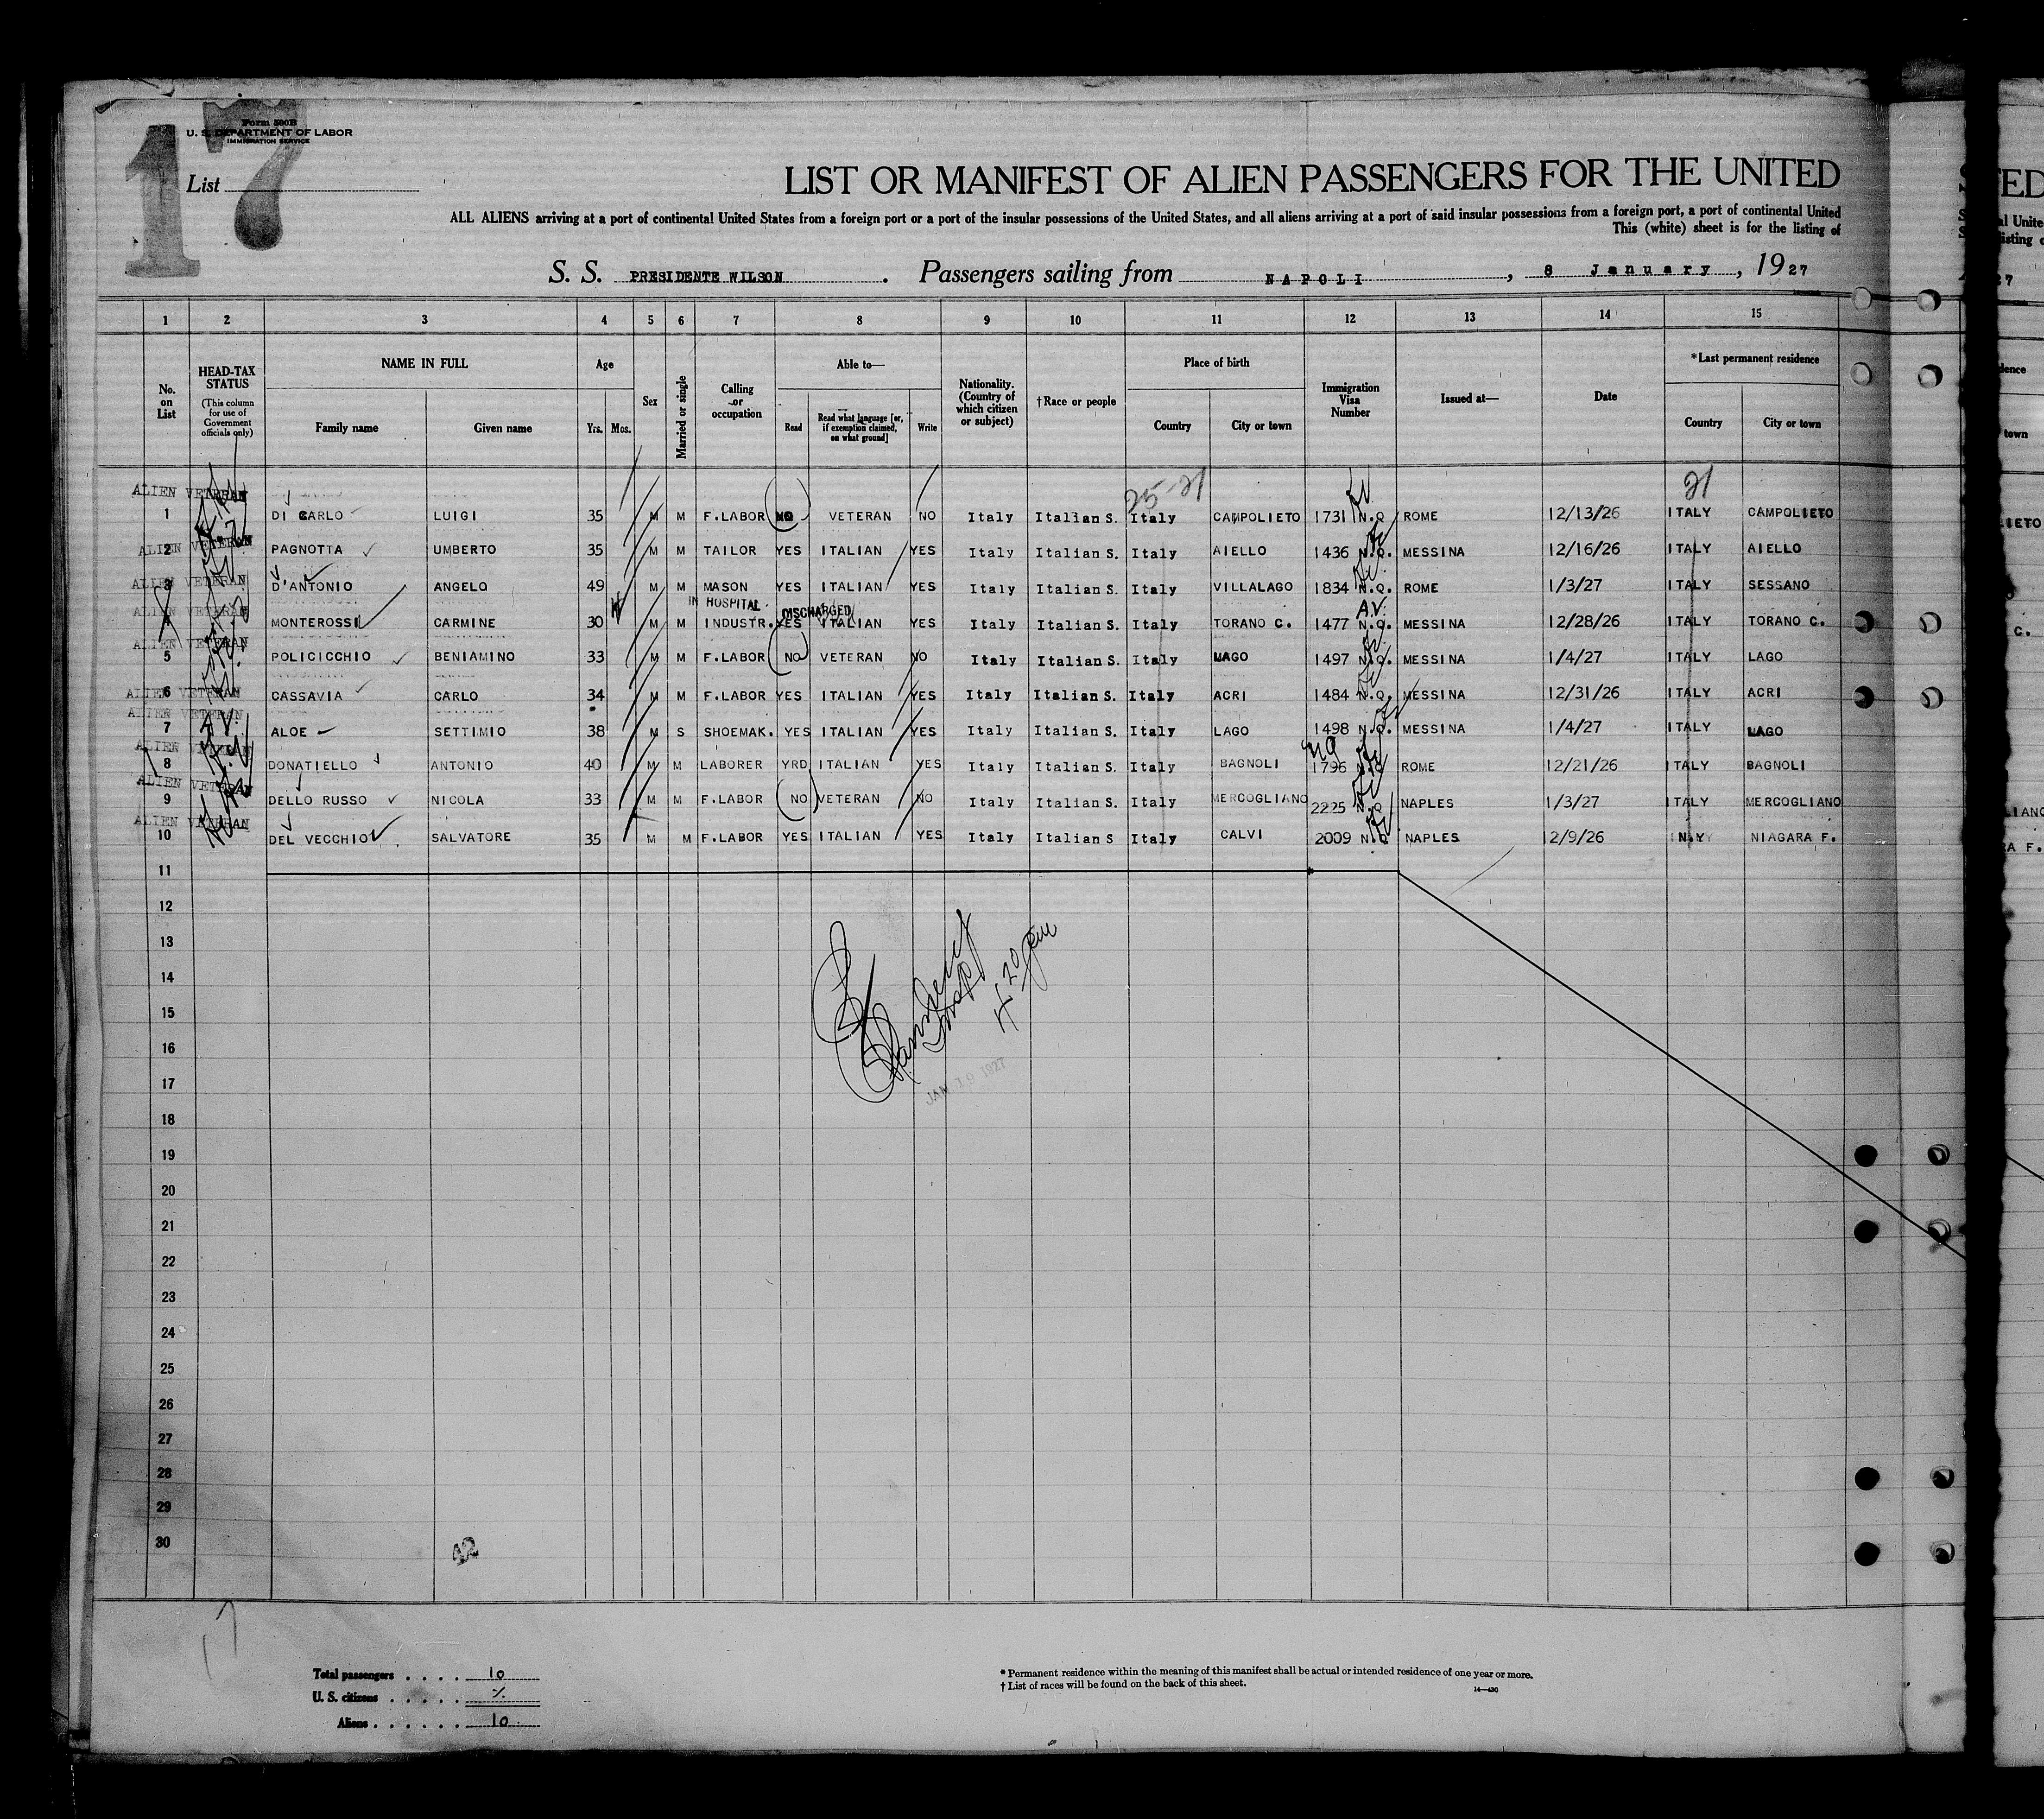 17
Form 500B
U. S. DEPARTMENT OF LABOR
IMMIGRATION SERVICE
List
LIST OR MANIFEST OF ALIEN PASSENGERS FOR THE UNITED
ALL ALIENS arriving at a port of continental United States from a foreign port or a port of the insular possessions of the United States, and all aliens arriving at a port of said insular possessions from a foreign port, a port of continental United
This (white) sheet is for the listing of
S. S. PRESIDENTE WILSON . Passengers sailing from NAPOLI , 8 January , 1927
1 2 3 4 5 6 7 8 9 10 11 12 13 14 15
No. on List HEAD-TAX STATUS (This column for use of Government officials only) NAME IN FULL Family name Given name Age Yrs. Mos. Sex Married or single Calling or occupation Able to— Read Read what language [or, if exemption claimed, on what ground] Write Nationality. (Country of which citizen or subject) †Race or people Place of birth Country City or town Immigration Visa Number Issued at— Date *Last permanent residence Country City or town
25-21 21
ALIEN VETERAN
1 DI CARLO LUIGI 35 M M F.LABOR NO VETERAN NO Italy Italian S. Italy CAMPOLIETO 1731 N.Q ROME 12/13/26 ITALY CAMPOLIETO
ALIEN VETERAN
2 PAGNOTTA UMBERTO 35 M M TAILOR YES ITALIAN YES Italy Italian S. Italy AIELLO 1436 N.Q. MESSINA 12/16/26 ITALY AIELLO
ALIEN VETERAN
3 D'ANTONIO ANGELO 49 M M MASON YES ITALIAN YES Italy Italian S. Italy VILLALAGO 1834 N.Q. ROME 1/3/27 ITALY SESSANO
ALIEN VETERAN IN HOSPITAL. DISCHARGED A.V.
4 MONTEROSSI CARMINE 30 M M INDUSTR. YES ITALIAN YES Italy Italian S. Italy TORANO C. 1477 N.Q. MESSINA 12/28/26 ITALY TORANO C.
ALIEN VETERAN
5 POLICICCHIO BENIAMINO 33 M M F.LABOR NO VETERAN NO Italy Italian S. Italy LAGO 1497 N.Q. MESSINA 1/4/27 ITALY LAGO
ALIEN VETERAN
6 CASSAVIA CARLO 34 M M F.LABOR YES ITALIAN YES Italy Italian S. Italy ACRI 1484 N.Q. MESSINA 12/31/26 ITALY ACRI
ALIEN VETERAN
7 ALOE SETTIMIO 38 M S SHOEMAK. YES ITALIAN YES Italy Italian S. Italy LAGO 1498 N.Q. MESSINA 1/4/27 ITALY LAGO
ALIEN VETERAN
8 DONATIELLO ANTONIO 40 M M LABORER YRD ITALIAN YES Italy Italian S. Italy BAGNOLI 1796 N.Q ROME 12/21/26 ITALY BAGNOLI
ALIEN VETERAN
9 DELLO RUSSO NICOLA 33 M M F.LABOR NO VETERAN NO Italy Italian S. Italy MERCOGLIANO 2225 N.Q NAPLES 1/3/27 ITALY MERCOGLIANO
ALIEN VETERAN
10 DEL VECCHIO SALVATORE 35 M M F.LABOR YES ITALIAN YES Italy Italian S Italy CALVI 2009 N.Q NAPLES 12/9/26 N.Y NIAGARA F.
11
12
13
14
15
16
17
18
19
20
21
22
23
24
25
26
27
28
29
30
JAN 19 1927
42
17
Total passengers . . . . 10
U. S. citizens . . . . .
Aliens . . . . . . 10
* Permanent residence within the meaning of this manifest shall be actual or intended residence of one year or more.
† List of races will be found on the back of this sheet.
14—430